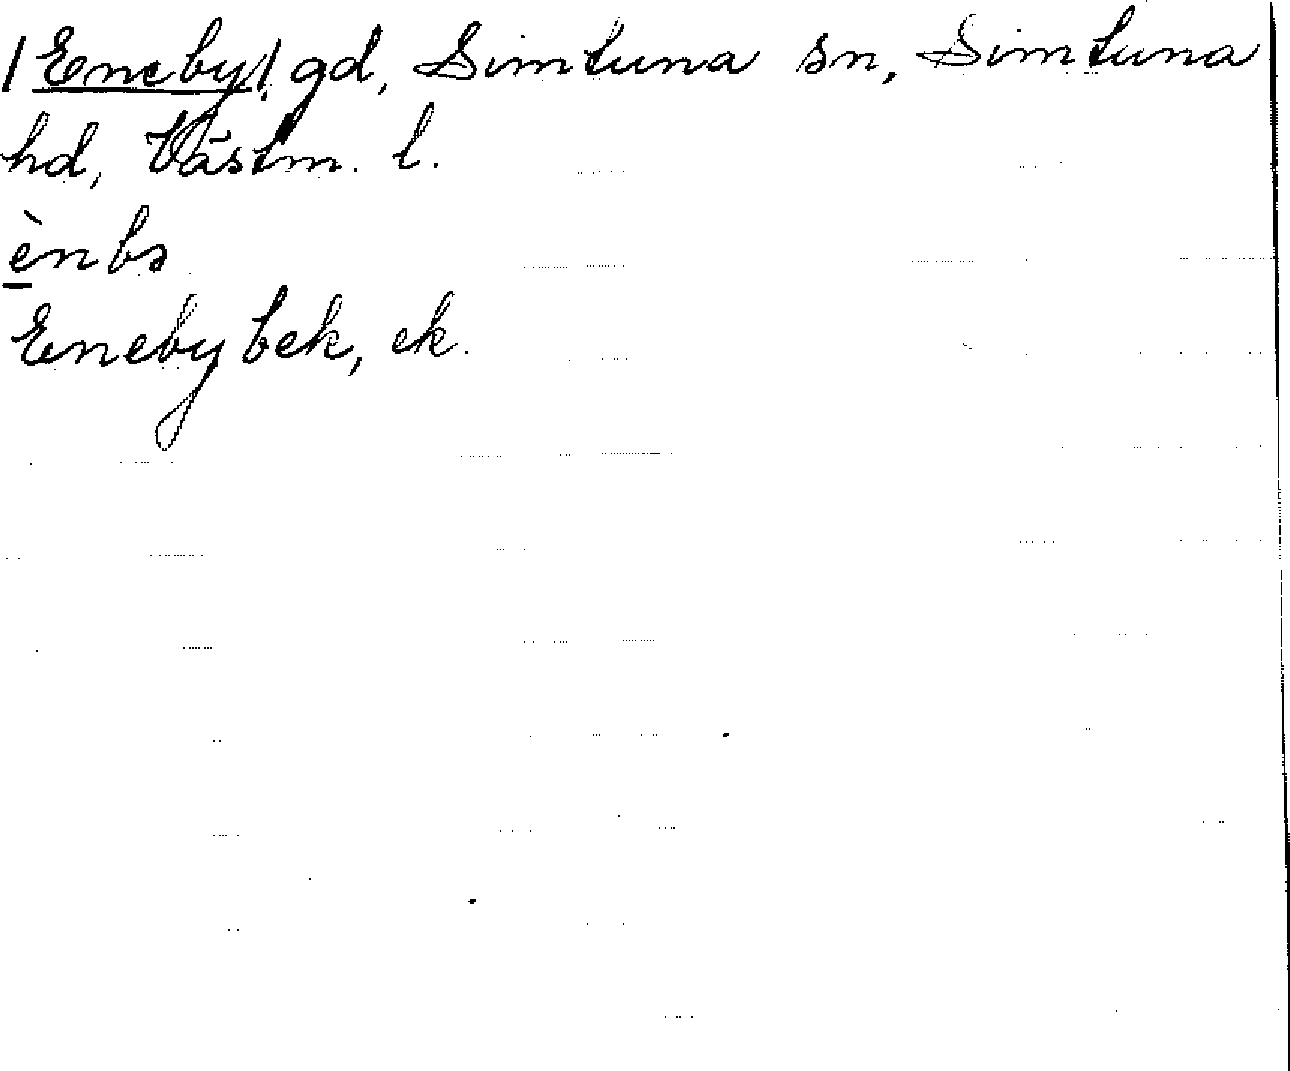 /Eneby/, gd, Simtuna sn, Simtuna
hd, Västm. l.
ènbs
Eneby bek, ek.